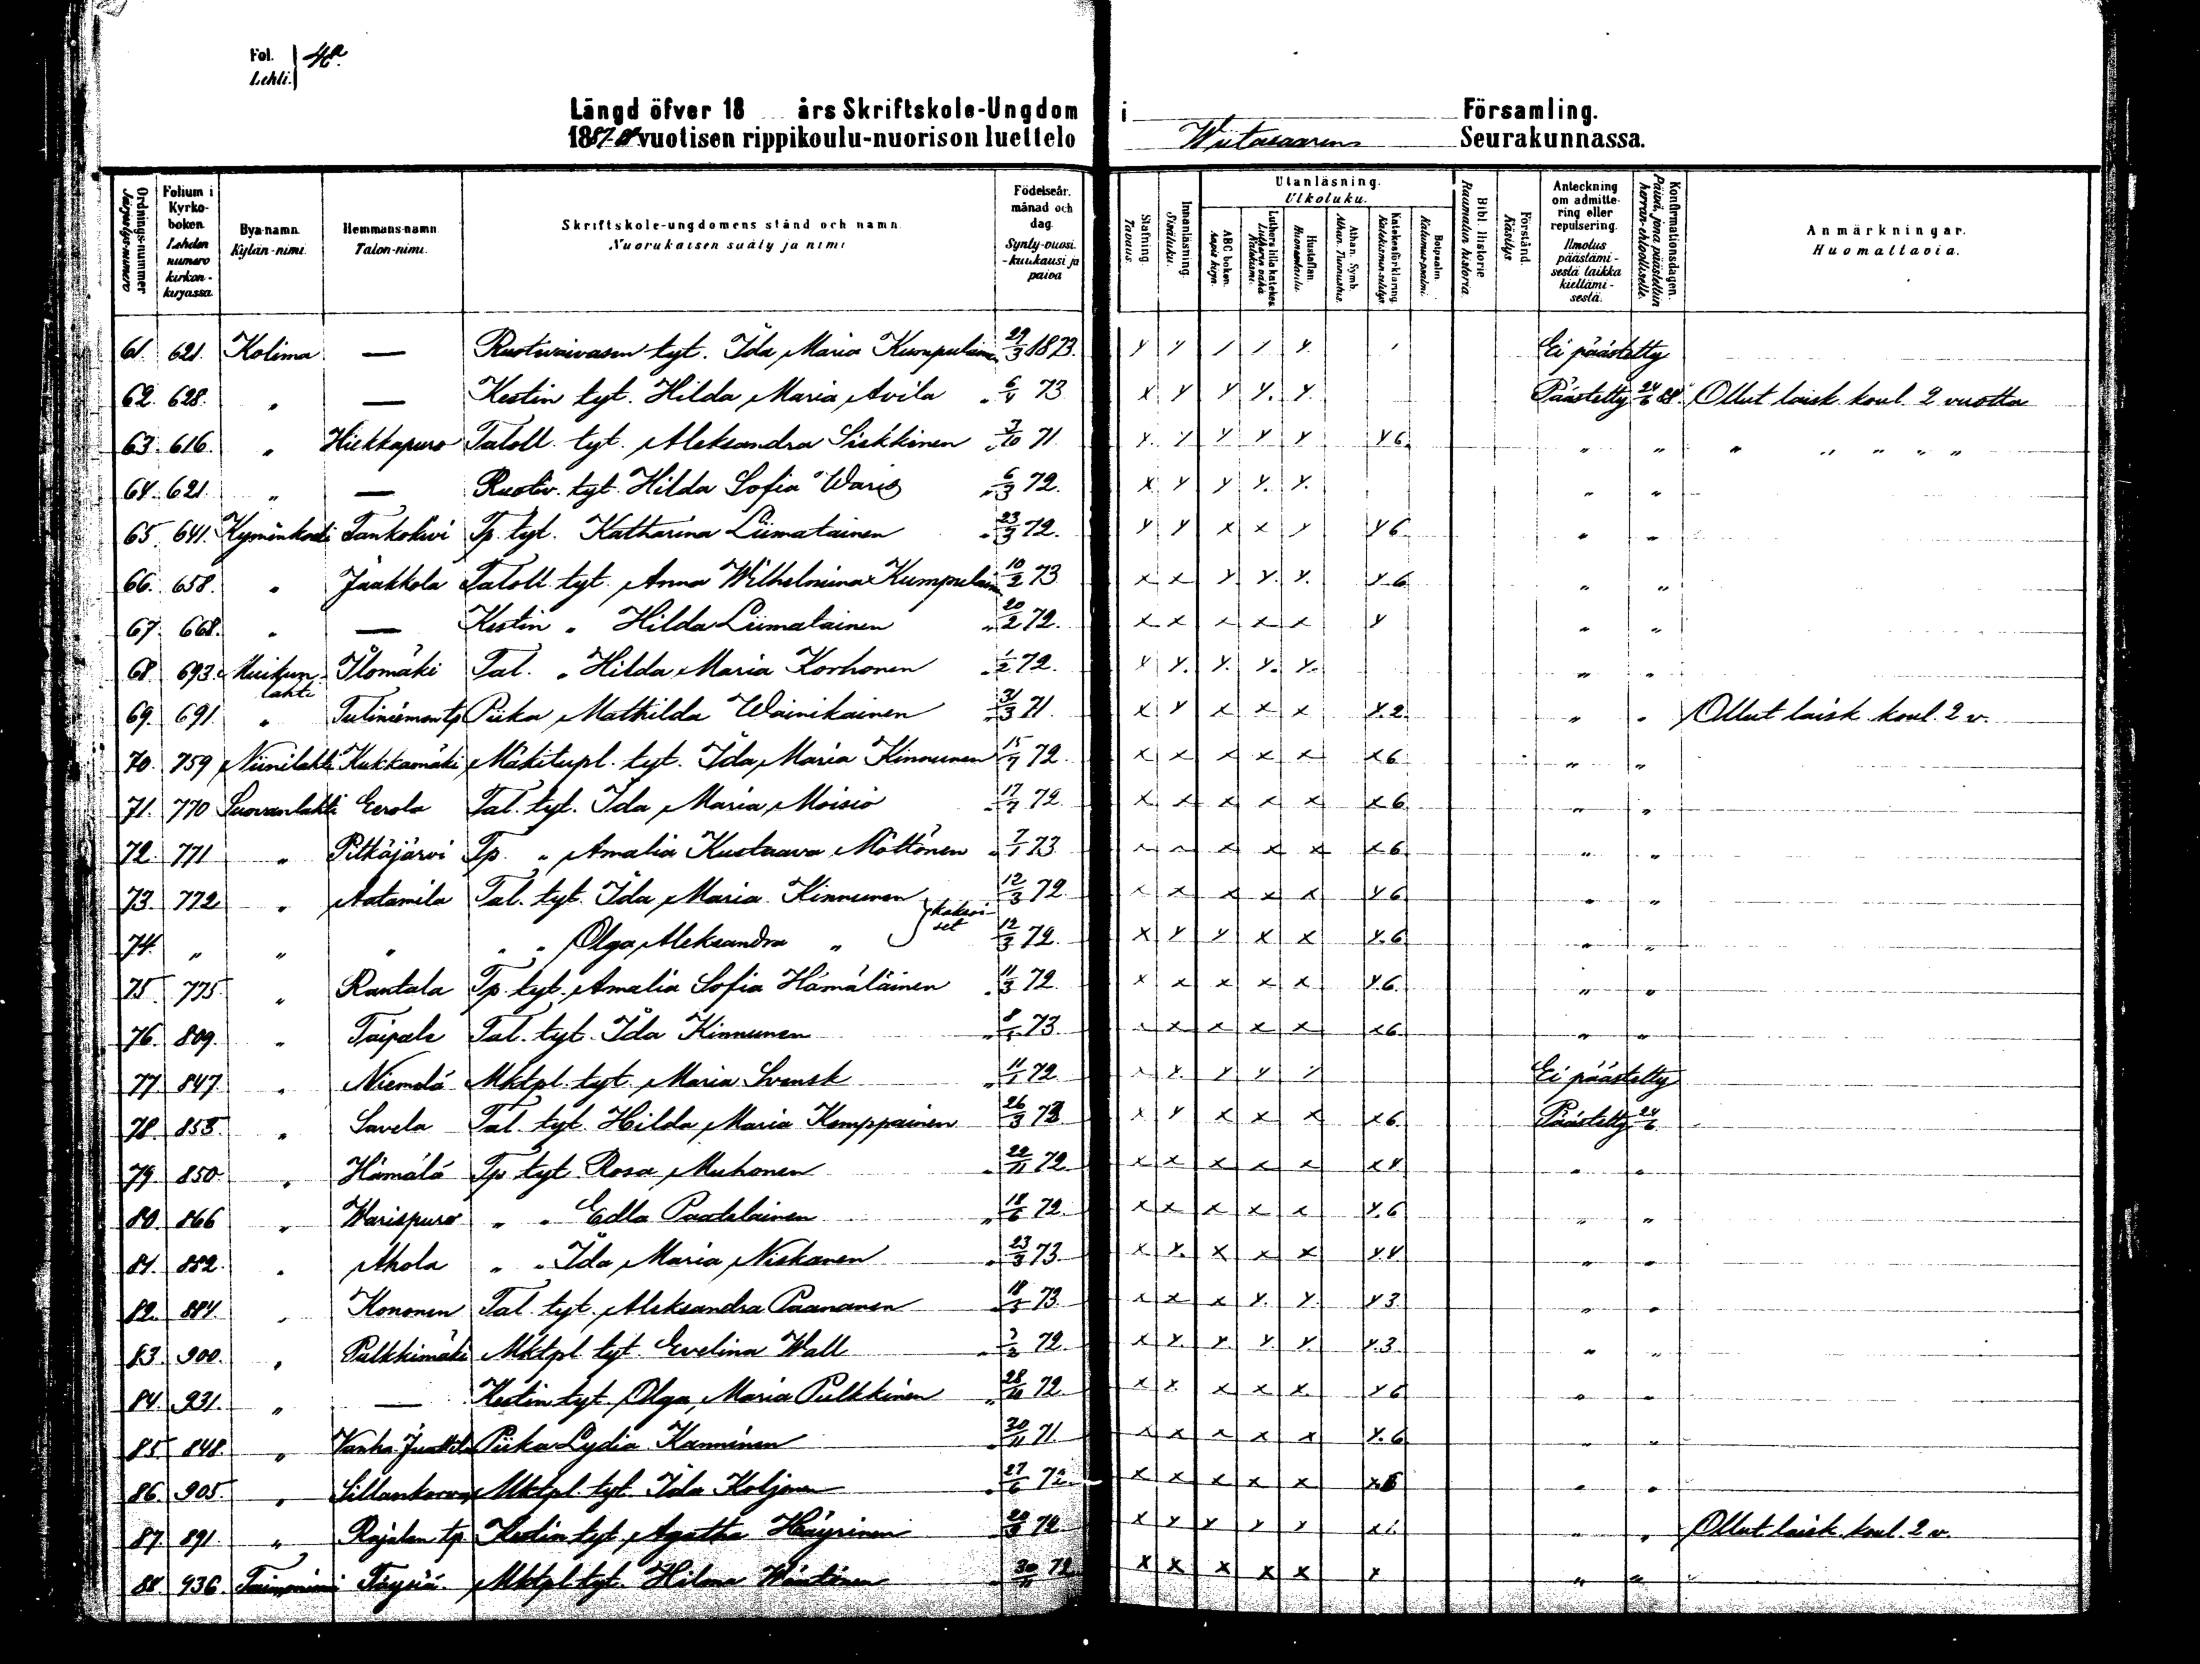 Fol. Lehti. 4a
Längd öfver 18 års Skriftskole-Ungdom i Församling.
1887-88 vuotisen rippikoulu-nuorison luettelo Wiitasaaren Seurakunnassa.
Ordnings-nummer Järjestys-numero
Folium i Kyrko-boken. Lehden numero kirkon-kirjassa.
Bya-namn. Kylän-nimi.
Hemmans-namn Talon-nimi.
Skriftskole-ungdomens stånd och namn. Nuorukaisen sääty ja nimi
Födelseår. månad och dag. Synty-vuosi. -kuukausi ja päivä
Stafning. Tavuus.
Innanläsning. Sisäluku.
Utanläsning. Ulkoluku.
ABC boken. Aapis kirja.
Luthers lilla katekes. Lutherin vähä Katekismi.
Hustaflan. Huoneentaulu.
Athan. Symb. Athan. Tunnustus.
Katekesförklaring. Katekismin selitys.
Botpsalm. Katumus-psalmi.
Bibl. Historie Raamatun historia
Förstånd. Käsitys
Anteckning om admitte-ring eller repulsering. Ilmoitus päästämi-sestä taikka kieltämi-sestä.
Konfirmationsdagen. Päivä, jona päästettiin herran-ehtoolliselle.
Anmärkningar. Huomattavia.
61. 621. Kolima — Ruotivaivasen tyt. Ida Maria Kumpulainen 29/3 1873. y y / / y / Ei päästetty
62. 628. " — Kestin tyt. Hilda Maria Avila " 6/4 73 x y y y. y. Päästetty 24/6 88. Ollut laisk. koul. 2 vuotta
63. 616. " Hiekkapuro Taloll. tyt. Aleksandra Siekkinen " 3/10 71 y. y y y y y 6. " " " " " " "
64. 621 " — Ruotiv. tyt. Hilda Sofia Waris " 6/3 72. x y y y. y. " "
65. 641. Kyminkoski Tankokivi Tp. tyt. Katharina Liimatainen " 23/3 72. y y x x y y 6. " "
66. 658. " Jaakkola Taloll. tyt. Anna Wilhelmiina Kumpulainen 10/2 73 x x y y. y. y 6 " "
67. 668. " — Kestin " Hilda Liimatainen " 20/2 72. x x x x x y " "
68 693. Muikunlahti Ilomäki Tal. " Hilda Maria Korhonen " 1/2 72. y y. y. y. y. " "
69. 691. " Piika Mathilda Wäinikainen " 31/3 71. x y x x x y. 2. " " Ollut laisk. koul. 2 v.
70. 759 Niinilahti Kukkamäki Mäkitupl. tyt. Ida Maria Kinnunen 15/7 72. x x x x x x 6 " "
71. 770 Suovanlahti Eerola Tal. tyt. Ida Maria Moisio " 17/7 72. x x x x x x 6 " "
72. 771 " Pitkäjärvi Tp. " Amalia Kustaava Möttönen " 7/1 73 x x x x x x 6 " "
73. 772 " Aatamila Tal. tyt. Ida Maria Kinnunen } kaksoiset 12/3 72 x x x x x y 6 " "
74. " " " " " Olga Aleksandra " 12/3 72. x y y x x y. 6 " "
75. 775. " Rantala Tp. tyt. Amalia Sofia Hämäläinen " 11/3 72. x x x x x y. 6. " "
76. 809. " Taipale Tal. tyt. Ida Kinnunen " 73. x x x x x x 6. " "
77. 847 " Niemelä Mktpl. tyt. Maria Svensk " 11/1 72 x y. y y y Ei päästetty
78 853. " Savela Tal. tyt. Hilda Maria Kemppainen 26/3 73 x y x x x x 6. Päästetty 24/6
79. 850. " Hämälä Tp. tyt. Rosa Muhonen " 22/11 72. x x x x x x 4 " "
80. 866 " Warispuro " " Edla Paatelainen " 18/6 72. x x x x x y. 6 " "
81. 852. " Ahola " " Ida Maria Niskanen " 23/3 73. x y. x x x y. 4 " "
82. 884. " Kononen Tal. tyt. Aleksandra Paananen " 73. x x x y. y. y 3. " "
83. 900. " Pulkkimäki Mktpl. tyt. Evelina Wall " 72. x y. y. y y. y. 3. " "
84. 931. " — Kestin tyt. Olga Maria Pulkkinen " 28/10 72. x y. x x x. y 6 " "
85. 848. " Vanha Piika Lydia Kanninen 30/11 71. x x x x x y. 6 " "
86. 905. " Sillankorva Mktpl. tyt. Ida Koljonen " 27/6 72. x x x x x x 6 " "
87. 891. " Rajalan tp. Kestin tyt. Agatha Häyrinen " 20/3 72. x y y y y " " Ollut laisk. koul. 2 v.
88. 936. Mktpl. tyt. Hilma " 30/11 72 x x x x x x " "